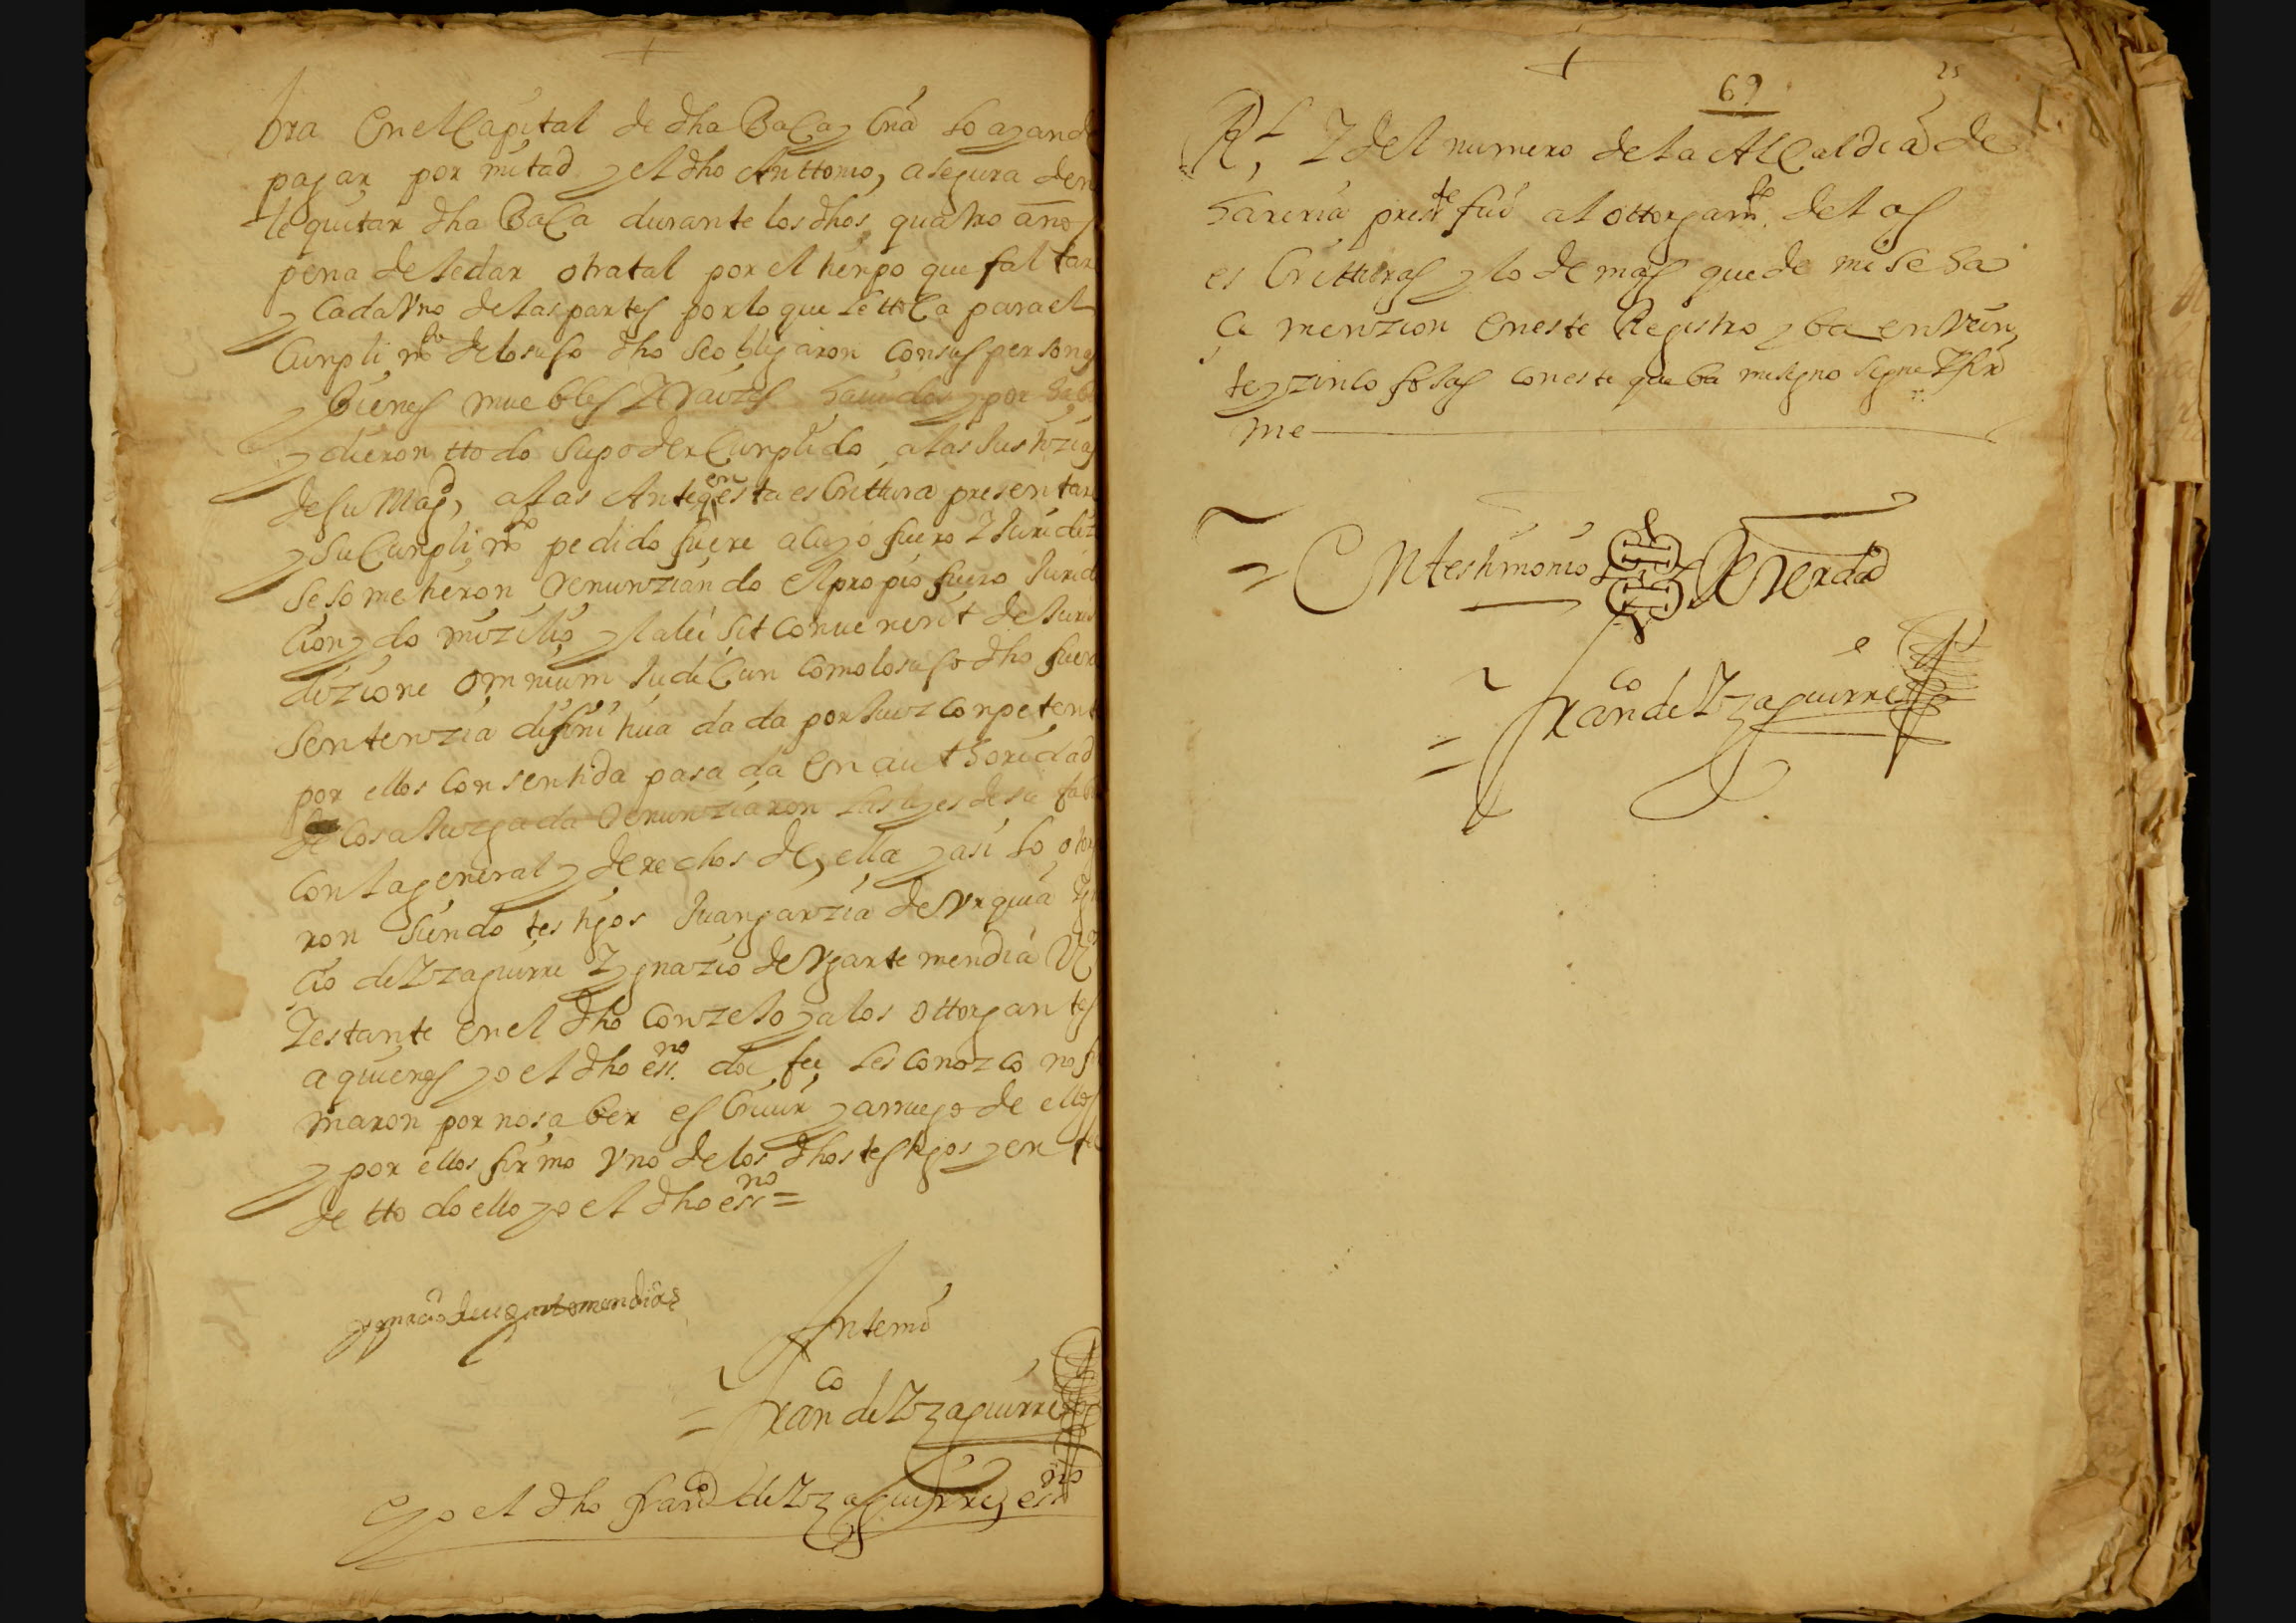 bra En el Capital de dha Baca y Cria lo ayan de
pagar por mitad y el dho Anttonio, asegura de no
le quitar dha Baca durante los dhos quatro años
pena de le dar otra tal por el tienpo que faltare
y Cada Vno de las partes por lo que le ttoca para el
Cunplimto de lo suso dho se obligaron con sus personas
y bienes muebles y Raizes hauidos y por haber
y dieron ttodo su poder Cunplido a las Justizias
de su Magd, a las Ante qen esta escrittura presentare
y su Cunplimto pedido fuere a cuyo fuero y Juridiz
se sometieron Renunziando el propio fuero Jurid
cion y domizilio y la lei sit conuenerit de Juris
dizione omnium Judicun como lo suso dho fuera
Sentenzia difinitiua dada por Juez conpetente
por ellos consentida pasada En authoridad
de cosa Juzgada Renunziaron las leyes de su fabor
con la general y derechos de, ella y asi lo otorg
ron siendo testigos Juan garzia de Vrquia Yg
cio de Yzaguirre Ygnazio de Vgarte mendia
Yestante en el dho conzejo y a los ottorgantes
a quienes yo el dho essno doi fee les conozco no fir
maron por no saber escriuir y a rruego de ellos
y por ellos firmo Vno de los dhos testigos y en fee
de ttodo ello yo el dho essno =
ygnacio de ugartemendia
Antemi
Franco de Yzaguirre
E yo el dho franco de Yzaguirre, essno
69
25
Rl, Y del numero de la Alcaldia de
Sareria preste fui al ottorgamto de las
escritturas y lo demas que de mi se ha
ce menzion en este Registro y ba en Vein
te y zinco fojas con este que ba mi signo signe Y fir
me
En testimonio de Verdad
Franco de Yzaguirre